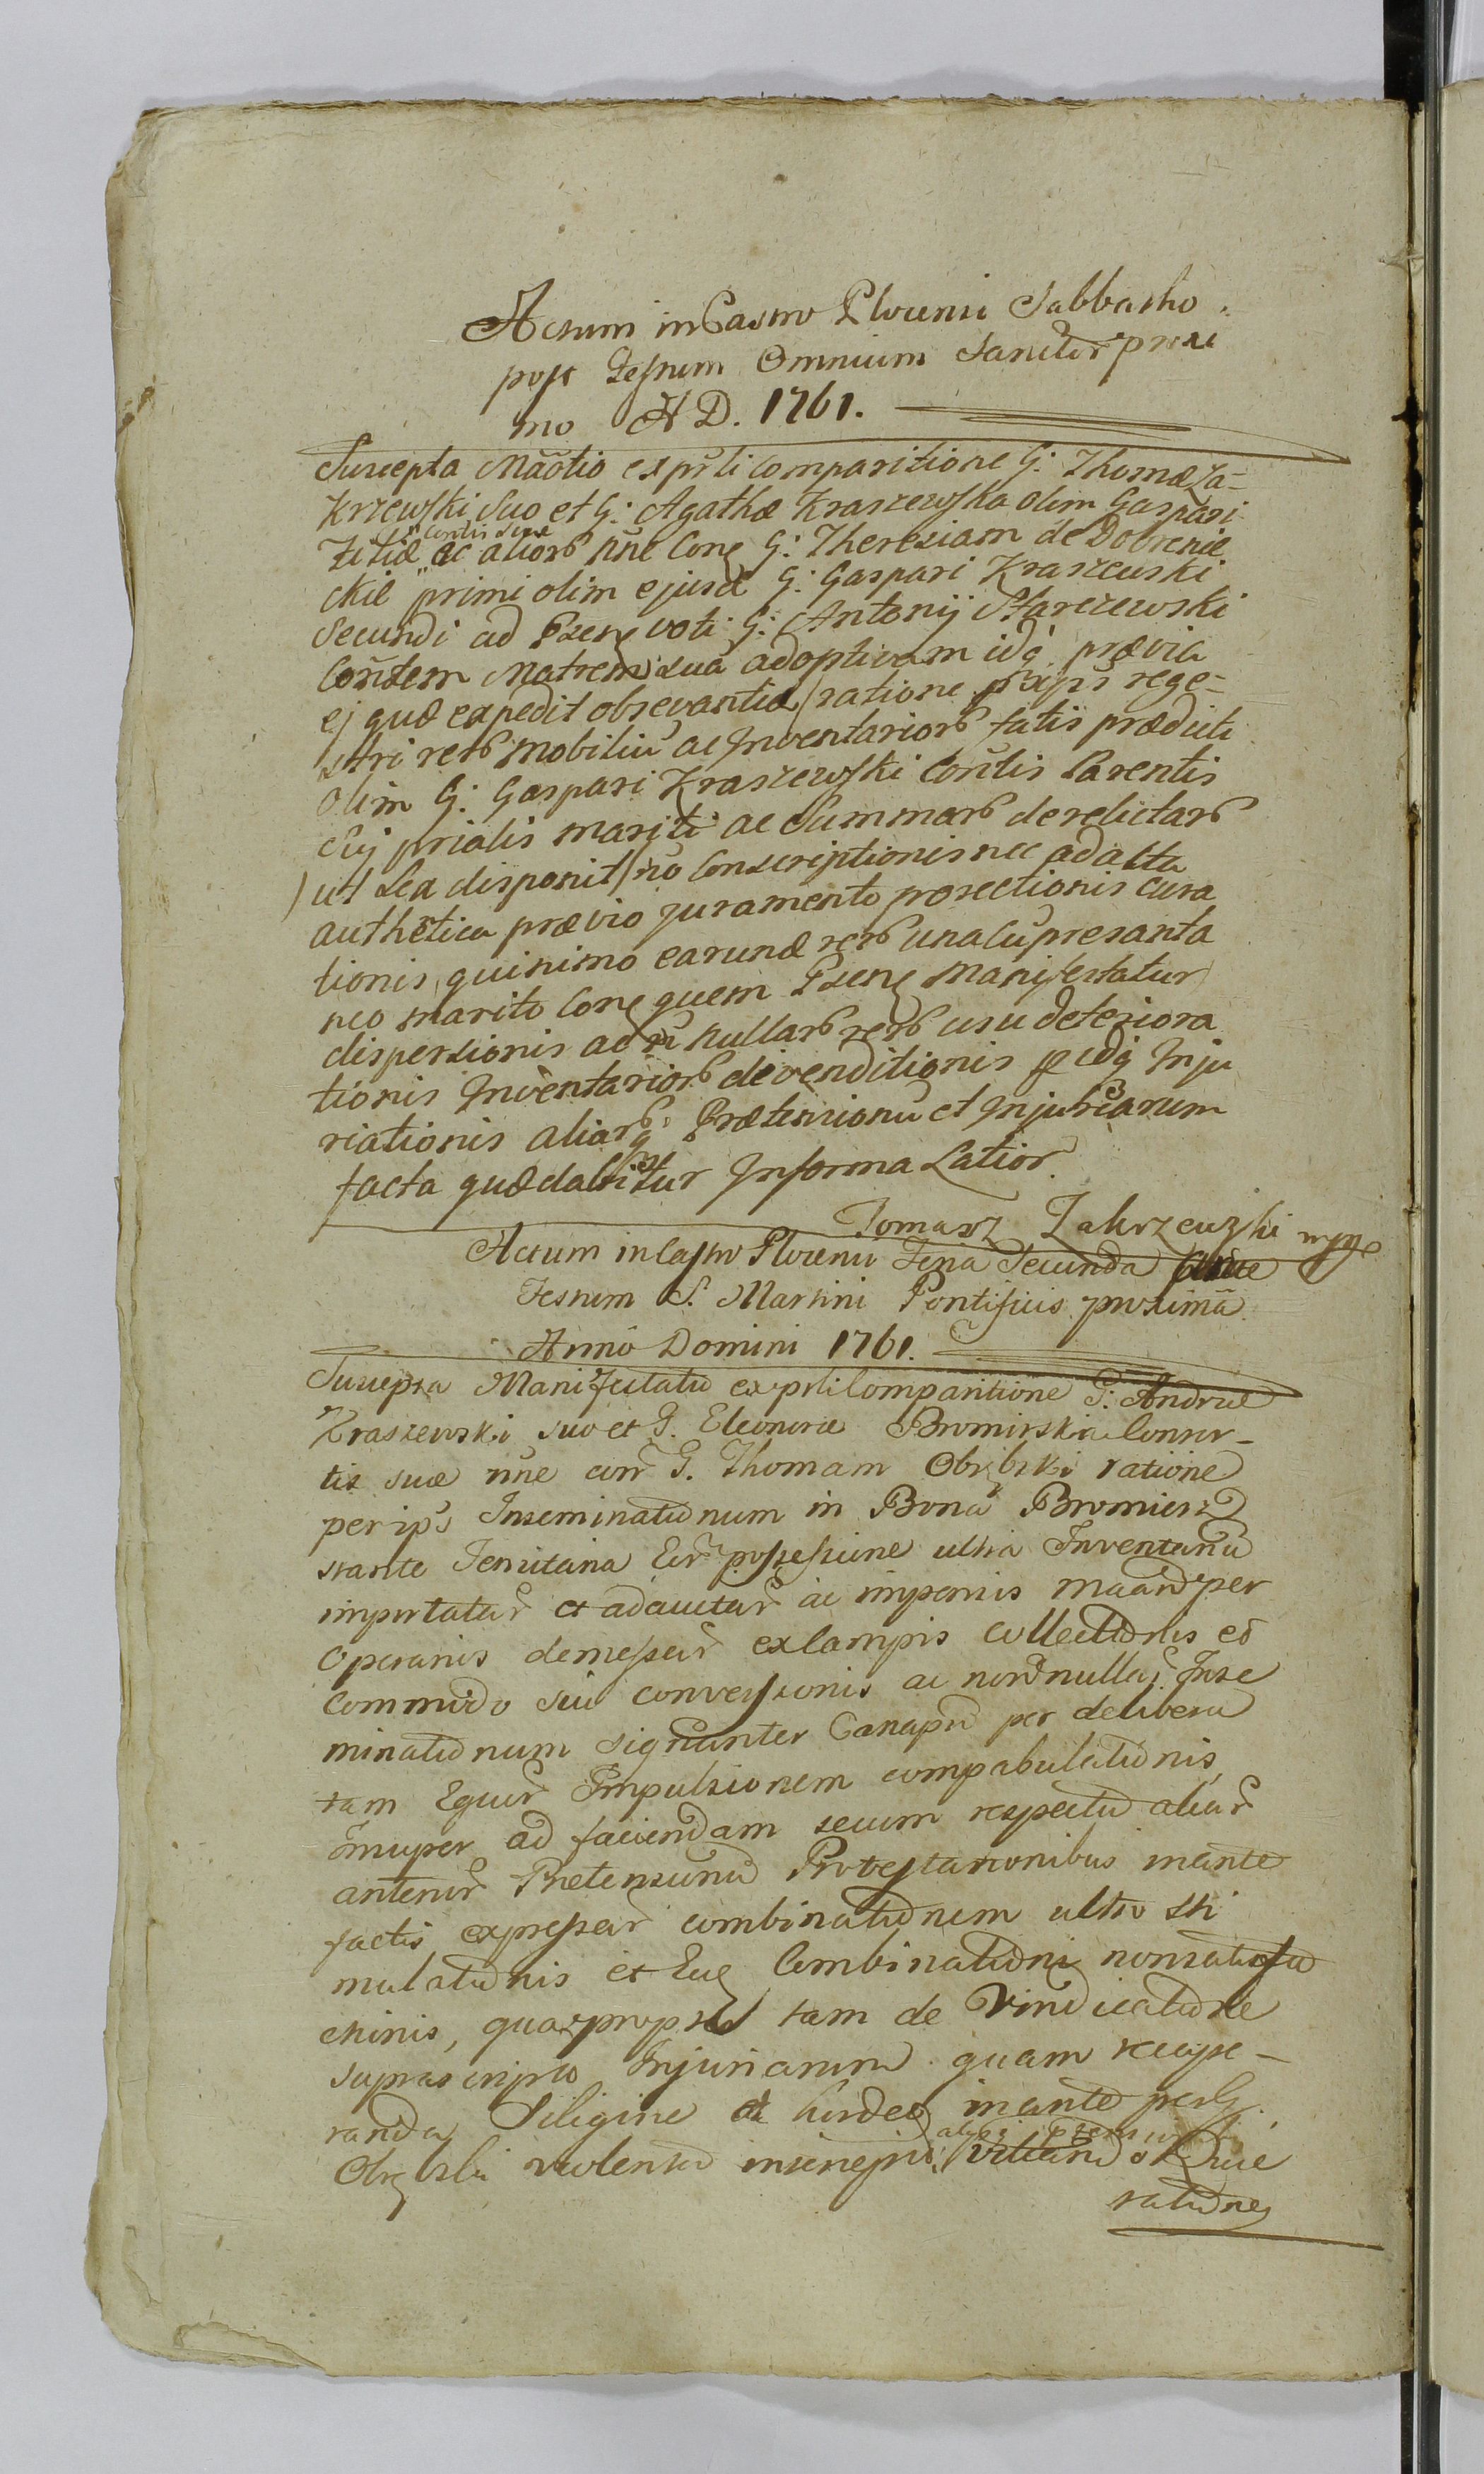 Actum in Castro Plocensi Sabbatho
post Festum Omnium Sanctor proxi
mo A D. 1761.
Suscepta Mãõtio ex pr̃li Comparitione G: Thomæ Za-
krzewski Suo et G: Agathæ Kraszewska olim Gaspari
Consortis Suæ
filiæ ac alior nñe Con G: Theresiam de Dobrenie
ckie primi olim ejusd G: Gaspari Kraszewski
Secundi ad Psens voti G: Antonij Starczewski
Coñtem Matrem suã adoptivam idq prævia
ej quæ expedit obsevantia / ratione
stri rer mobiliũ ac Inventarior fatis præduti
Olim G: Gaspari Kraszewski Cor̃lis Parentis
Sui prialis mariti ac Summar derelictar
) ut Lex disponit / nõ Conscriptionis nec ad acta
authẽtica prævio juramento porrectionis cura
tionis, quinimo earundẽ rer una cũ presanta
neo marito Con quem Psens Manifestatur
dispersionis ac nõ nullar rer usu deteriora
tionis Inventarior divenditionis p idq Inju
riationis aliarq Prætensionũ et Injuriarum
facta quæ dabitur In forma Latior.
Tomasz Zakrzewski mpp
Actum in Castro Plocensi Feria Secunda ante
Festum S. Martini Pontificis proxima
Anno Domini 1761.
Suscepta Manifestatio ex pr̃li Comparitione G: Andreæ
Kraszewski suo et G. Eleonoræ Bromirska Consor-
tis suæ nñe con G. Thomam Obrębski ratione
per ips Inseminationum in Bona Bromierz
stante Tenutaria Eor possessione ultra Inventariũ
importatar et adauctar ac impensis per
Operarios demessar ex Campis Collectionis et
Commodo suo conversionis ac non nullar Inse
minationum signanter Canapũ per delibera
tam Equor Impulsionem compabulationis,
insuper ad faciendam secum respectu aliar
anterior Pretensionũ Protestationibus in ante
factis expressar combinationem ultro sti
mulationis et Combinationi non satisfa
ctionis, quapropter tam de Vindicatione
suprascripto Injuriarum quam recupe-
randa Siligine et hordeo in ante per G.
Obrębski violenter
ratione